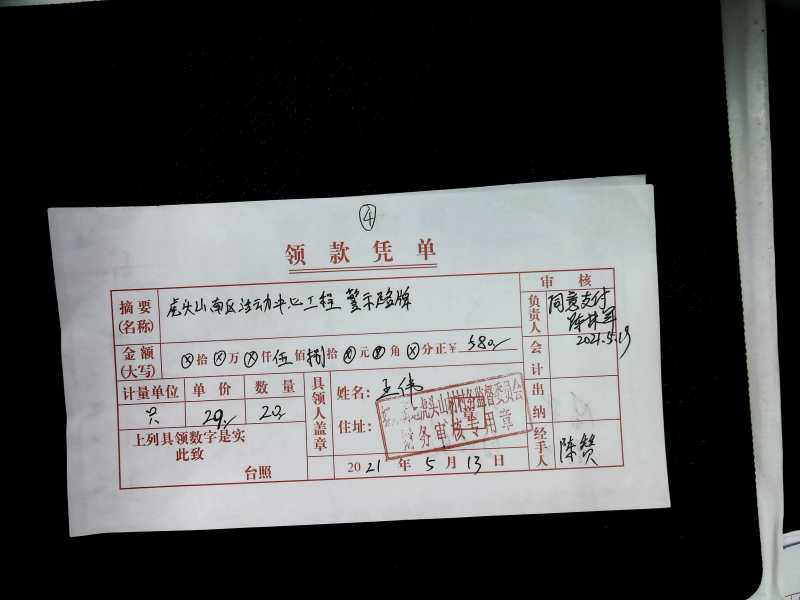 ④
领款凭单
摘要(名称) 虎头山南区活动中心工程 警示险牌
审核
负责人 同意支付
2021.5.19
金额(大写) ⊗拾⊗万⊗仟伍佰捌拾⊗元⊗角⊗分正¥ 580/
会计
计量单位 单价 数量
只 29/ 20/
上列具领数字是实
此致
台照
具领人盖章
姓名: 王伟
住址:
虎头山村村务监督委员会
财务审核专用章
2021年5月13日
出纳
经手人 陈赞